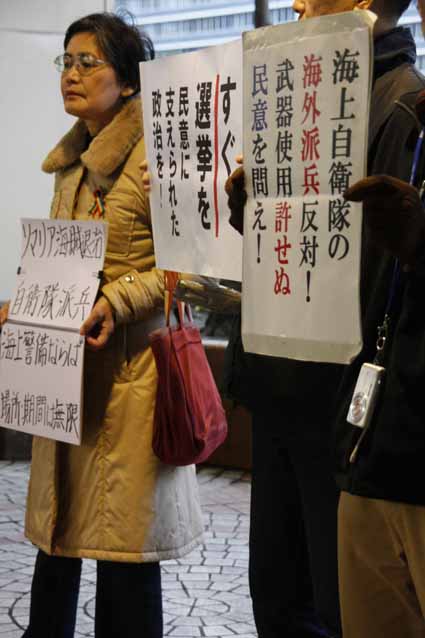 ソマリア海賊退治
自衛隊派兵
海上警備ならば
場所・期間は無限
すぐ
選挙を
民意に
支えられた
政治を！
海上自衛隊の
海外派兵反対！
武器使用許せぬ
民意を問え！